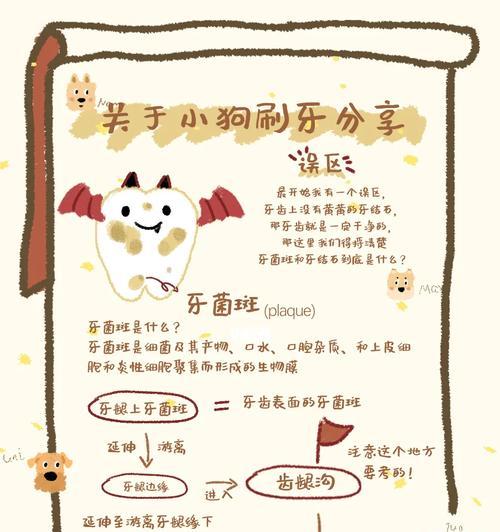 关于小狗刷牙分享
误区
最开始我有一个误区，
牙齿上没有黄黄的牙结石，
那牙齿就是一定干净的，
那这里我们得捋清楚
牙菌斑和牙结石到底是什么？
牙菌斑 (plaque)
牙菌斑是什么？
牙菌斑是细菌及其产物、口水、口腔杂质、和上皮细
胞和炎性细胞聚集而形成的生物膜
牙龈上牙菌斑 = 牙齿表面的牙菌斑
延伸 游离
注意这个地方
要考的！
牙龈边缘 进入 齿龈沟
延伸至游离牙龈缘下